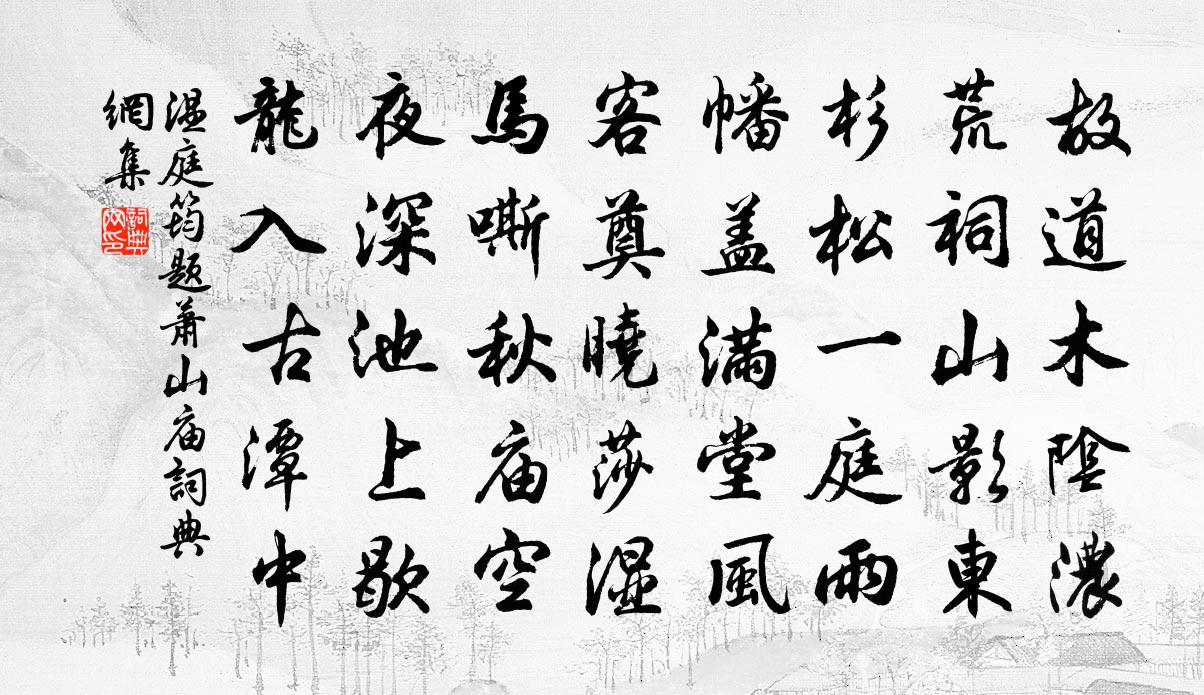 故道木陰濃
荒祠山影東
杉松一庭雨
幡蓋滿堂風
客奠曉莎濕
馬嘶秋庙空
夜深池上歇
龍入古潭中
温庭筠題蕭山庙詞典
網集
詞典網印